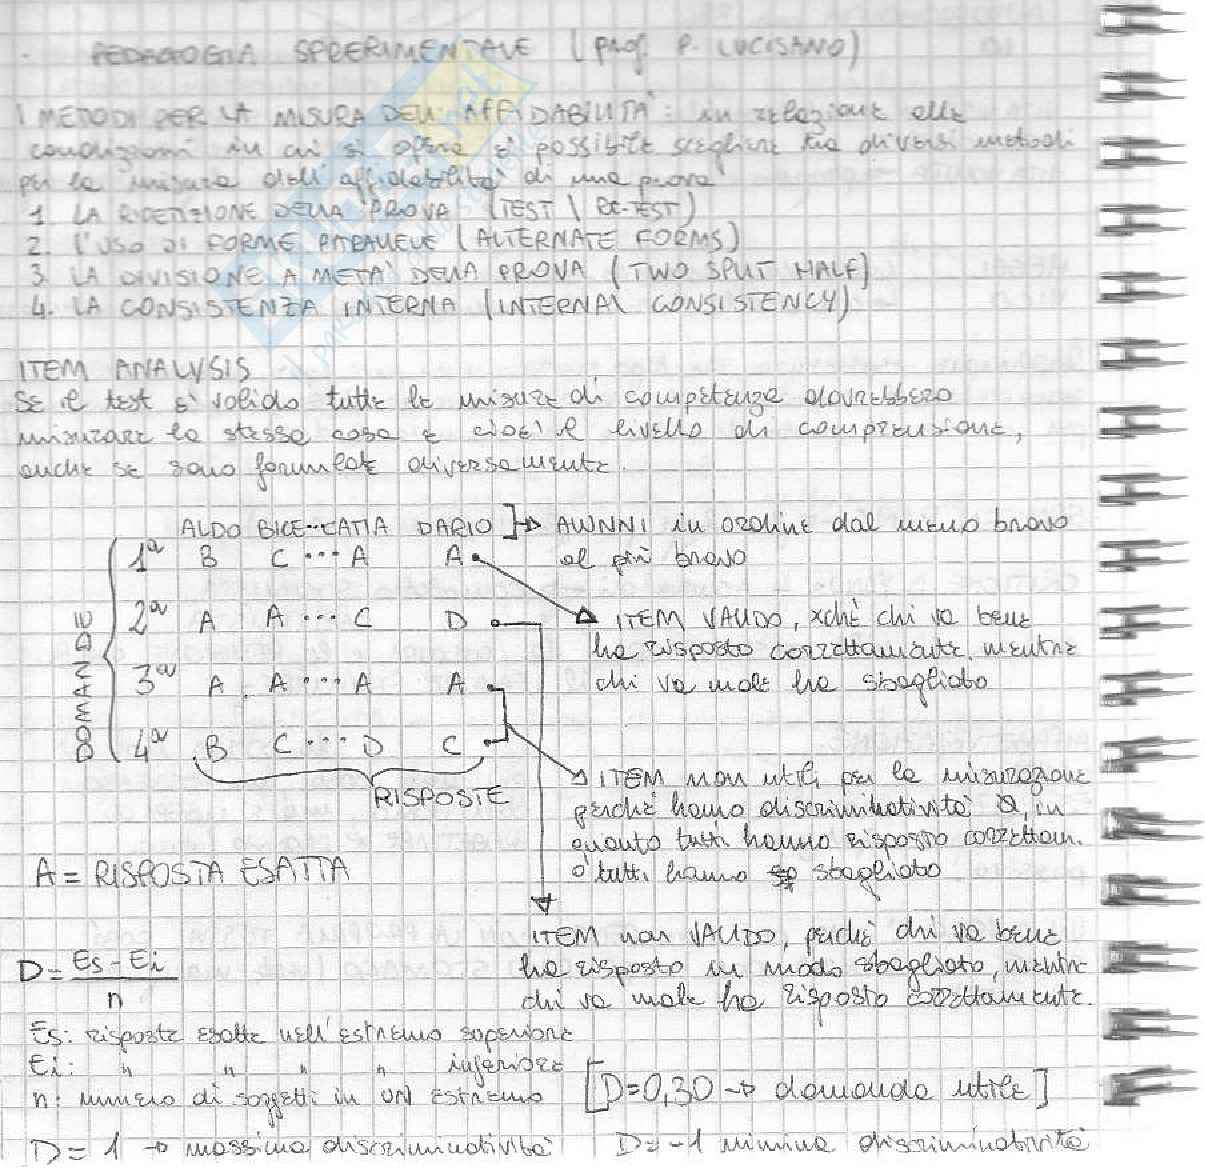 PEDAGOGIA SPERIMENTALE (PROF. P. LUCISANO)
I METODI PER LA MISURA DELL'AFFIDABILITÀ: in relazione alle
condizioni in cui si opera è possibile scegliere tra diversi metodi
per la misura dell'affidabilità di una prova
1. LA RIPETIZIONE DELLA PROVA (TEST / RE-TEST)
2. L'USO DI FORME PARALLELE (ALTERNATE FORMS)
3. LA DIVISIONE A METÀ DELLA PROVA (TWO SPLIT HALF)
4. LA CONSISTENZA INTERNA (INTERNAL CONSISTENCY)
ITEM ANALYSIS
Se il test è valido tutte le misure di competenza dovrebbero
misurare la stessa cosa e cioè il livello di comprensione,
anche se sono formulate diversamente.
ALDO BICE...CATIA DARIO ]→ ALUNNI in ordine dal meno bravo
al più bravo
DOMANDE
1ª B C ... A A
2ª A A ... C D
3ª A A ... A A
4ª B C ... D C
RISPOSTE
ITEM VALIDO, xché chi va bene
ha risposto correttamente, mentre
chi va male ha sbagliato
ITEM non utili per la misurazione
perché hanno discriminatività 0, in
quanto tutti hanno risposto correttam.
o tutti hanno sbagliato
A = RISPOSTA ESATTA
ITEM non VALIDO, perché chi va bene
ha risposto in modo sbagliato, mentre
chi va male ha risposto correttamente.
D = Es - Ei
n
Es: risposte esatte nell'estremo superiore
Ei: " " " " inferiore
n: numero di soggetti in UN estremo [D=0,30 → domanda utile]
D = 1 → massima discriminatività D = -1 minima discriminatività